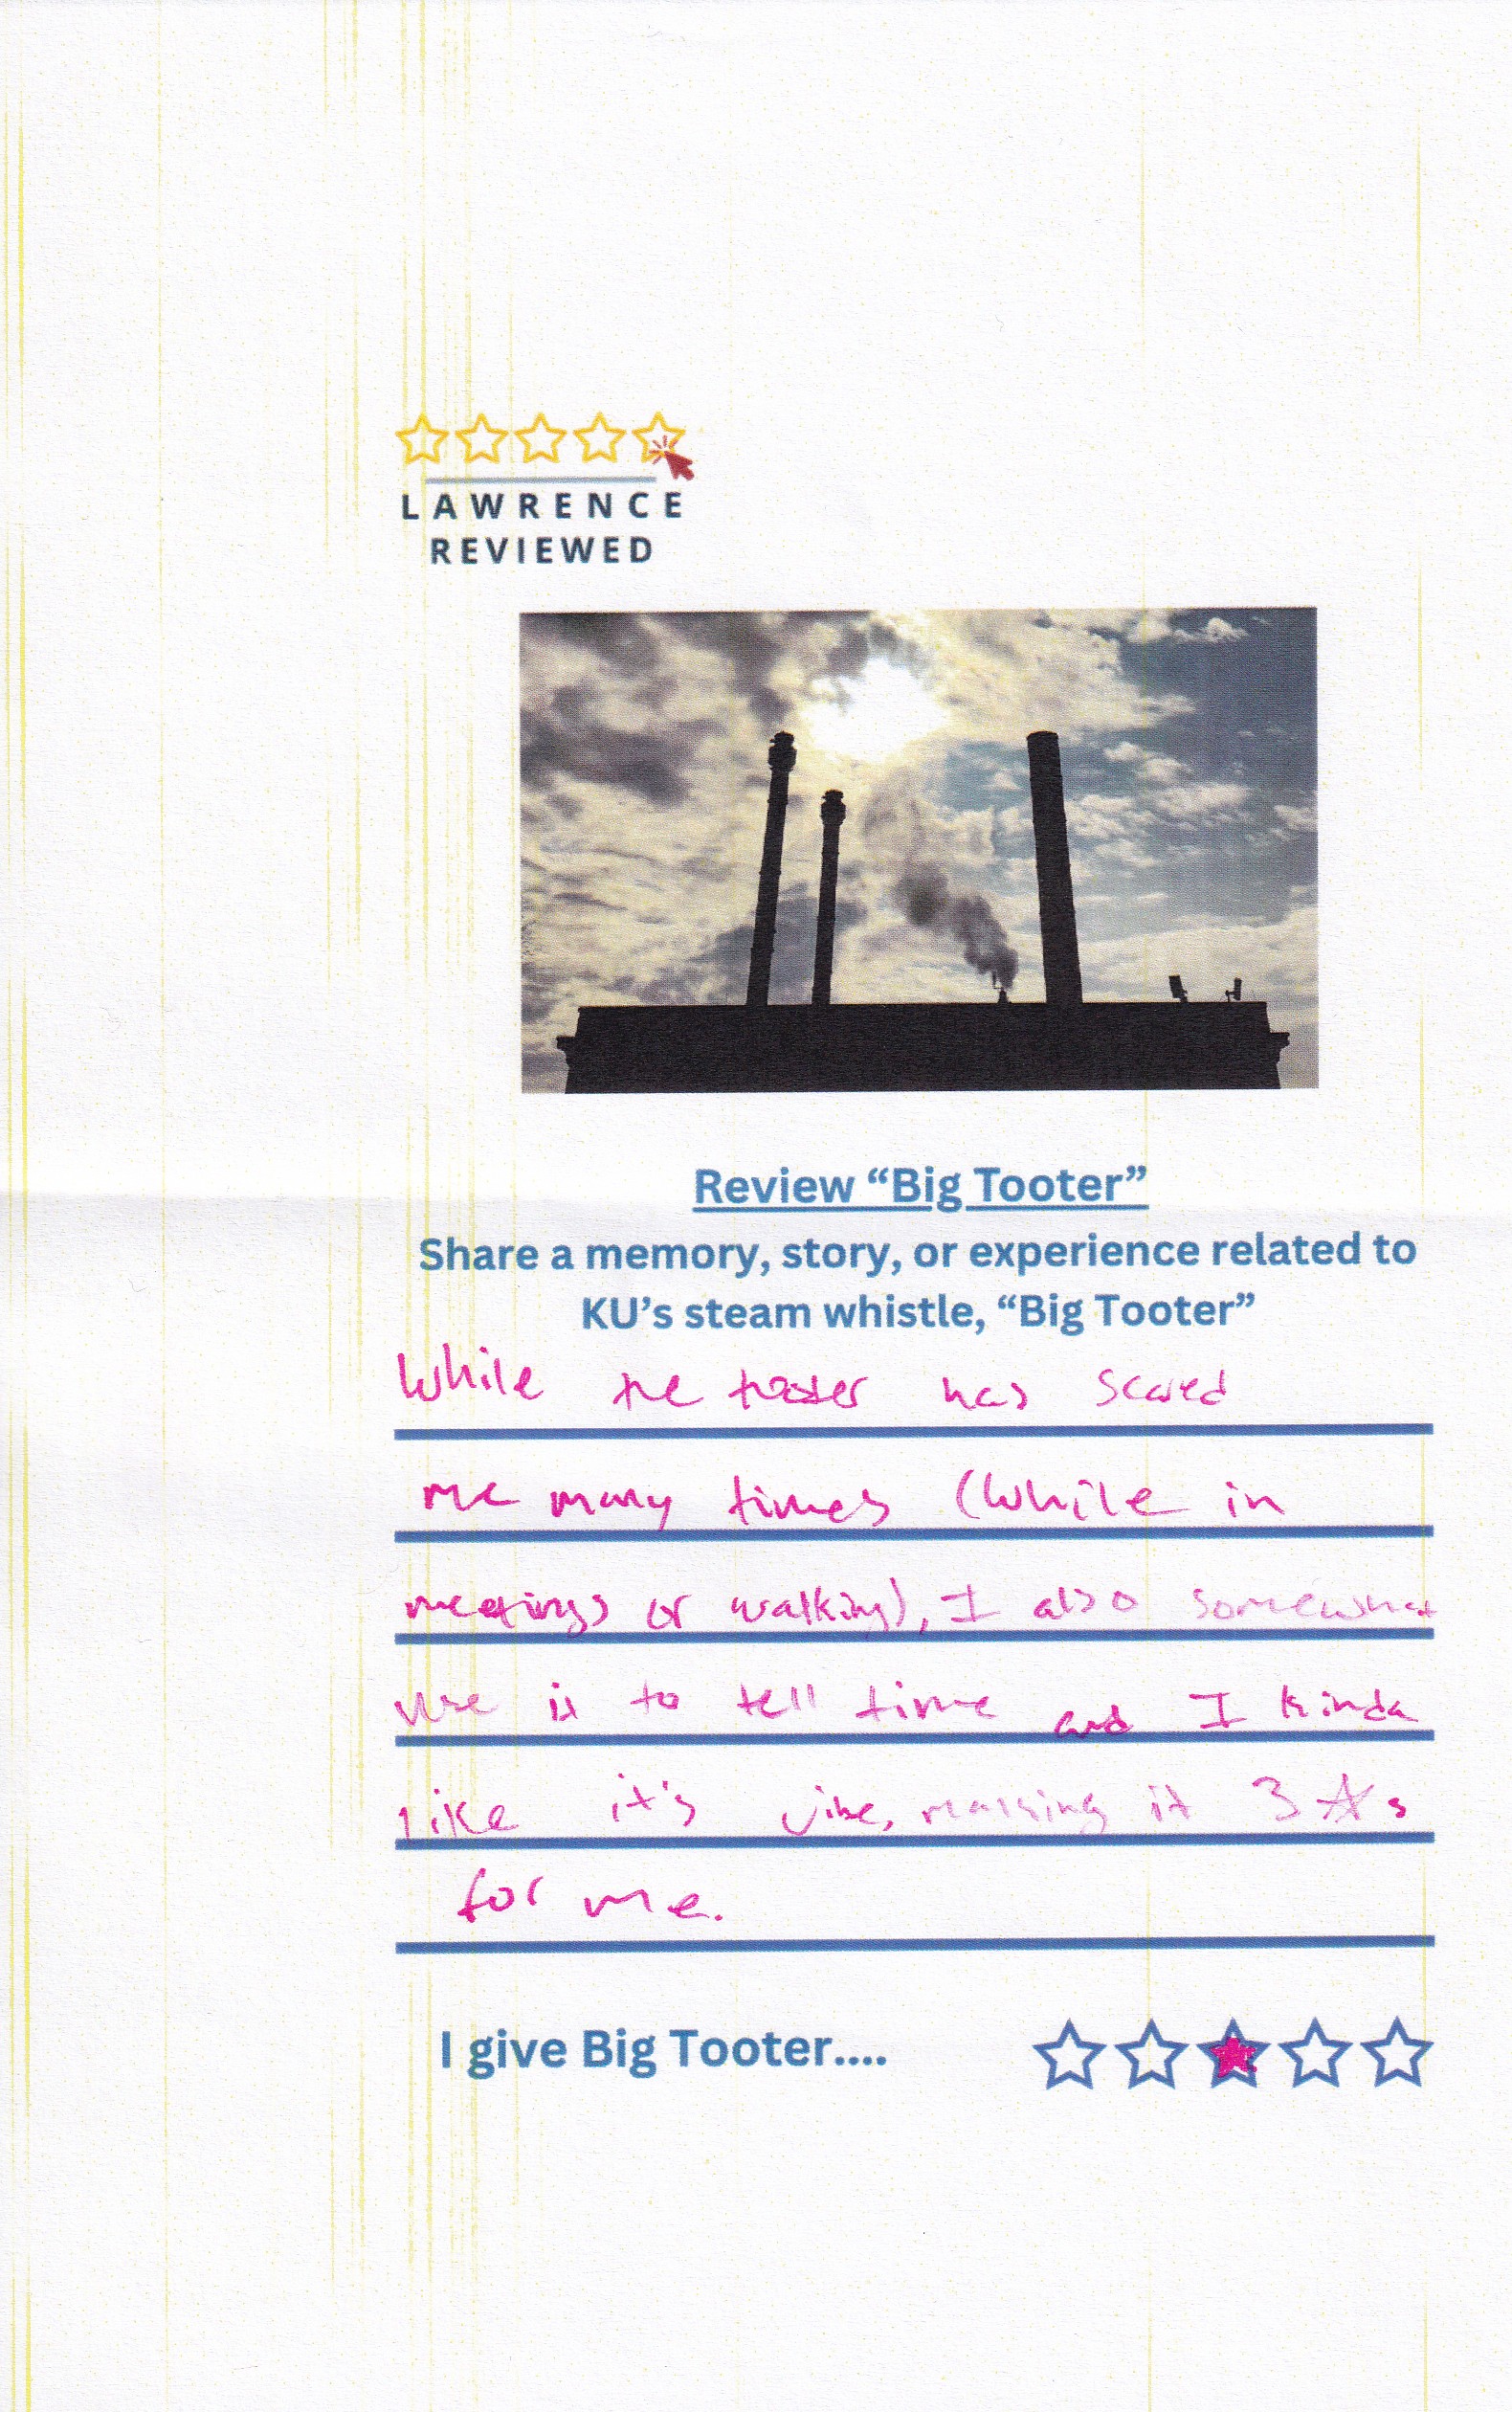 LAWRENCE
REVIEWED
Review “Big Tooter”
Share a memory, story, or experience related to
KU’s steam whistle, “Big Tooter”
While the tooter has scared
me many times (while in
meetings or walking), I also somewhat
use it to tell time and I kinda
like it's vibe, making it 3 ☆s
for me.
I give Big Tooter....